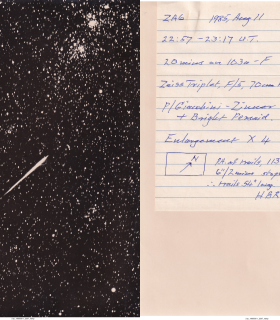 ZAG 1985, Aug 11
22:57 - 23:17 U.T.
20 mins on 103a-F
Zeiss Triplet, F/5, 70mm
P/Giacobini - Zinner
+ Bright Perseid.
Enlargement X 4
N
PA of trails, 113
6½ mins
∴ trails 56" long
HBR